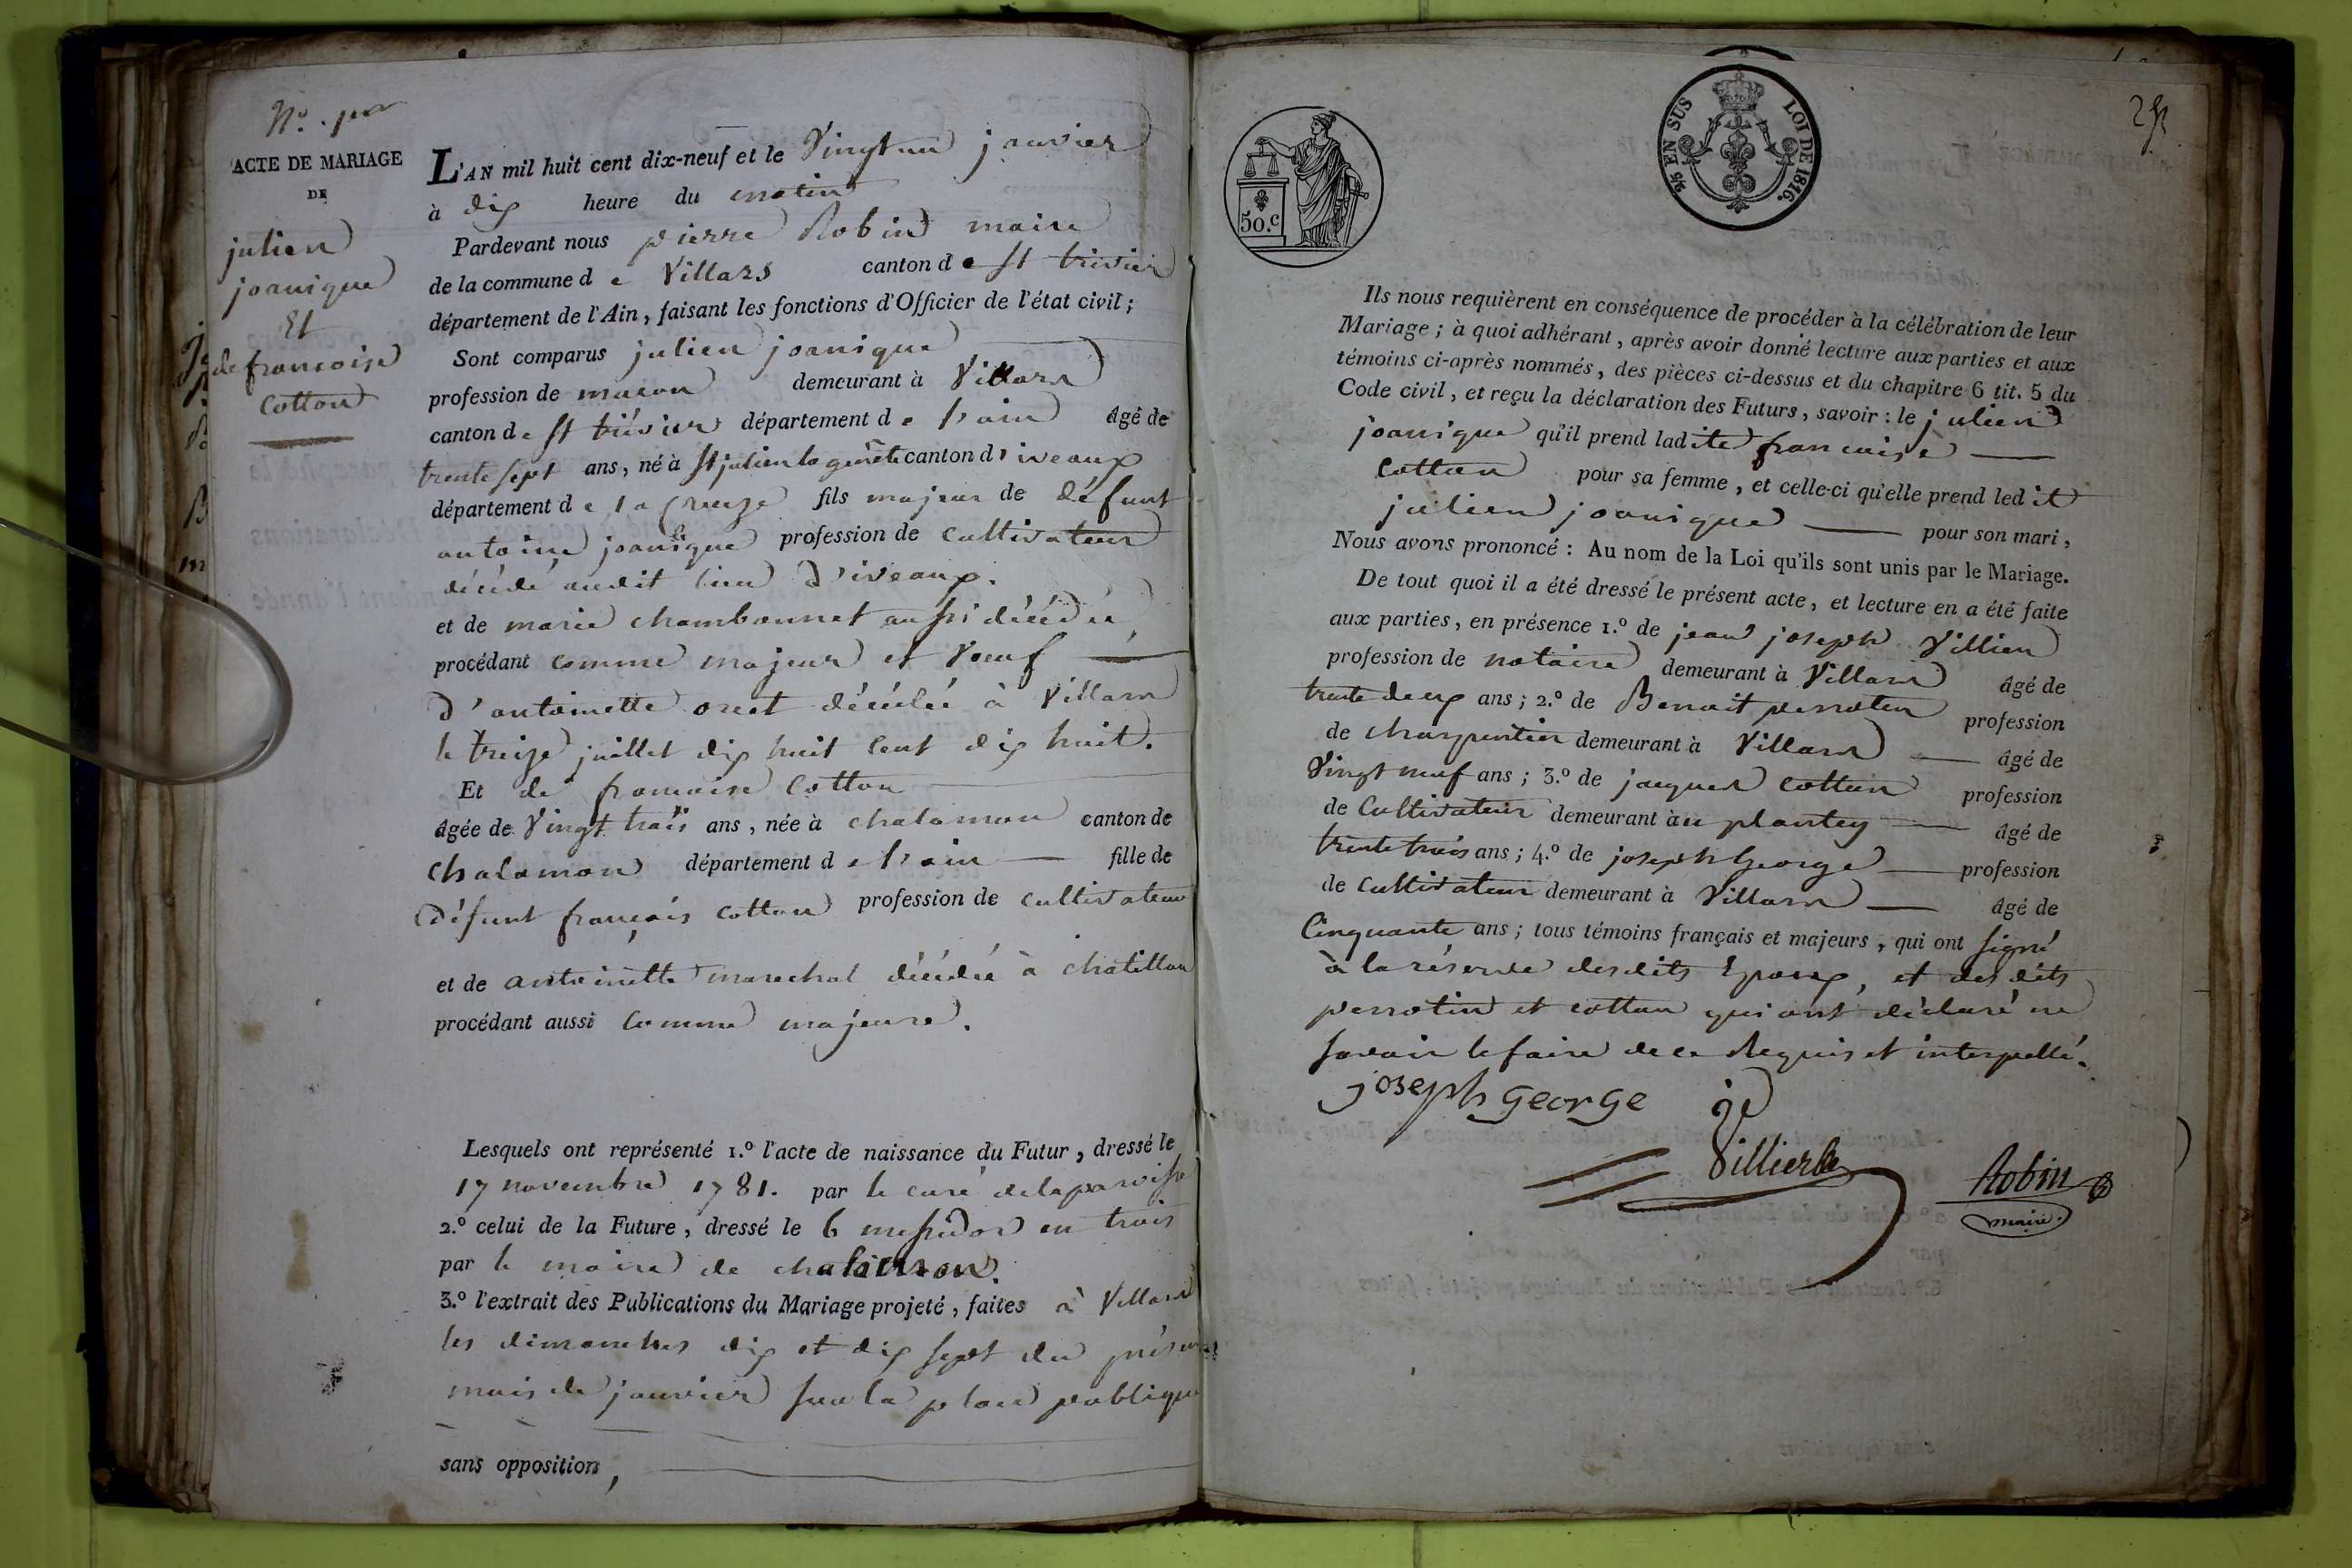 N.º 1er
ACTE DE MARIAGE
DE
julien
joanique
Et
de francoise
Cotton
L'AN mil huit cent dix-neuf et le Vingt un janvier
à dix heure du matin
Pardevant nous pierre Robin maire
de la commune de Villars canton de St trivier
département de l'Ain, faisant les fonctions d'Officier de l'état civil;
Sont comparus julien joanique
profession de macon demeurant à Villars
canton de St trivier département de l'ain âgé de
trente sept ans, né à St julien la genete canton d'iveaux
département de la Creuze fils majeur de défunt
antoine joanique profession de cultivateur
décédé audit lieu d'iveaux.
et de marie chambonnet aussi décédée
procédant comme majeur et Voeuf
d'antoinette oret décédée à Villars
le treize juillet dix huit cent dix huit.
Et de francoise Cotton
âgée de Vingt trois ans, née à chalamon canton de
Chalamon département de l'ain fille de
Défunt françois cotton profession de cultivateur
et de antoinette marechal décédée à chatillon
procédant aussi comme majeure.
Lesquels ont représenté 1.º l'acte de naissance du Futur, dressé le
17 novembre 1781. par le curé de la paroisse
2.º celui de la Future, dressé le 6 messidor en trois
par le maire de chalamon.
3.º l'extrait des Publications du Mariage projeté, faites à Villars
les dimanches dix et dix sept du présent
mois de janvier sur la place publique
sans opposition,
50.c
5/5 EN SUS LOI DE 1816.
Ils nous requièrent en conséquence de procéder à la célébration de leur
Mariage; à quoi adhérant, après avoir donné lecture aux parties et aux
témoins ci-après nommés, des pièces ci-dessus et du chapitre 6 tit. 5 du
Code civil, et reçu la déclaration des Futurs, savoir: le julien
joanique qu'il prend ladite francoise
Cotton pour sa femme, et celle-ci qu'elle prend ledit
julien joanique pour son mari,
Nous avons prononcé: Au nom de la Loi qu'ils sont unis par le Mariage.
De tout quoi il a été dressé le présent acte, et lecture en a été faite
aux parties, en présence 1.º de jean joseph Villien
profession de notaire demeurant à Villars âgé de
trente deux ans; 2.º de Benoit perrotin profession
de charpentier demeurant à Villars âgé de
Vingt neuf ans; 3.º de jacques cotton profession
de Cultivateur demeurant au plantey âgé de
trente trois ans; 4.º de joseph George profession
de cultivateur demeurant à Villars âgé de
Cinquante ans; tous témoins français et majeurs, qui ont signé
à la réserve desdits Epoux, et desdits
perrotin et cotton qui ont déclaré ne
savoir le faire de ce Requis et interpellé.
joseph george
Robin
maire.